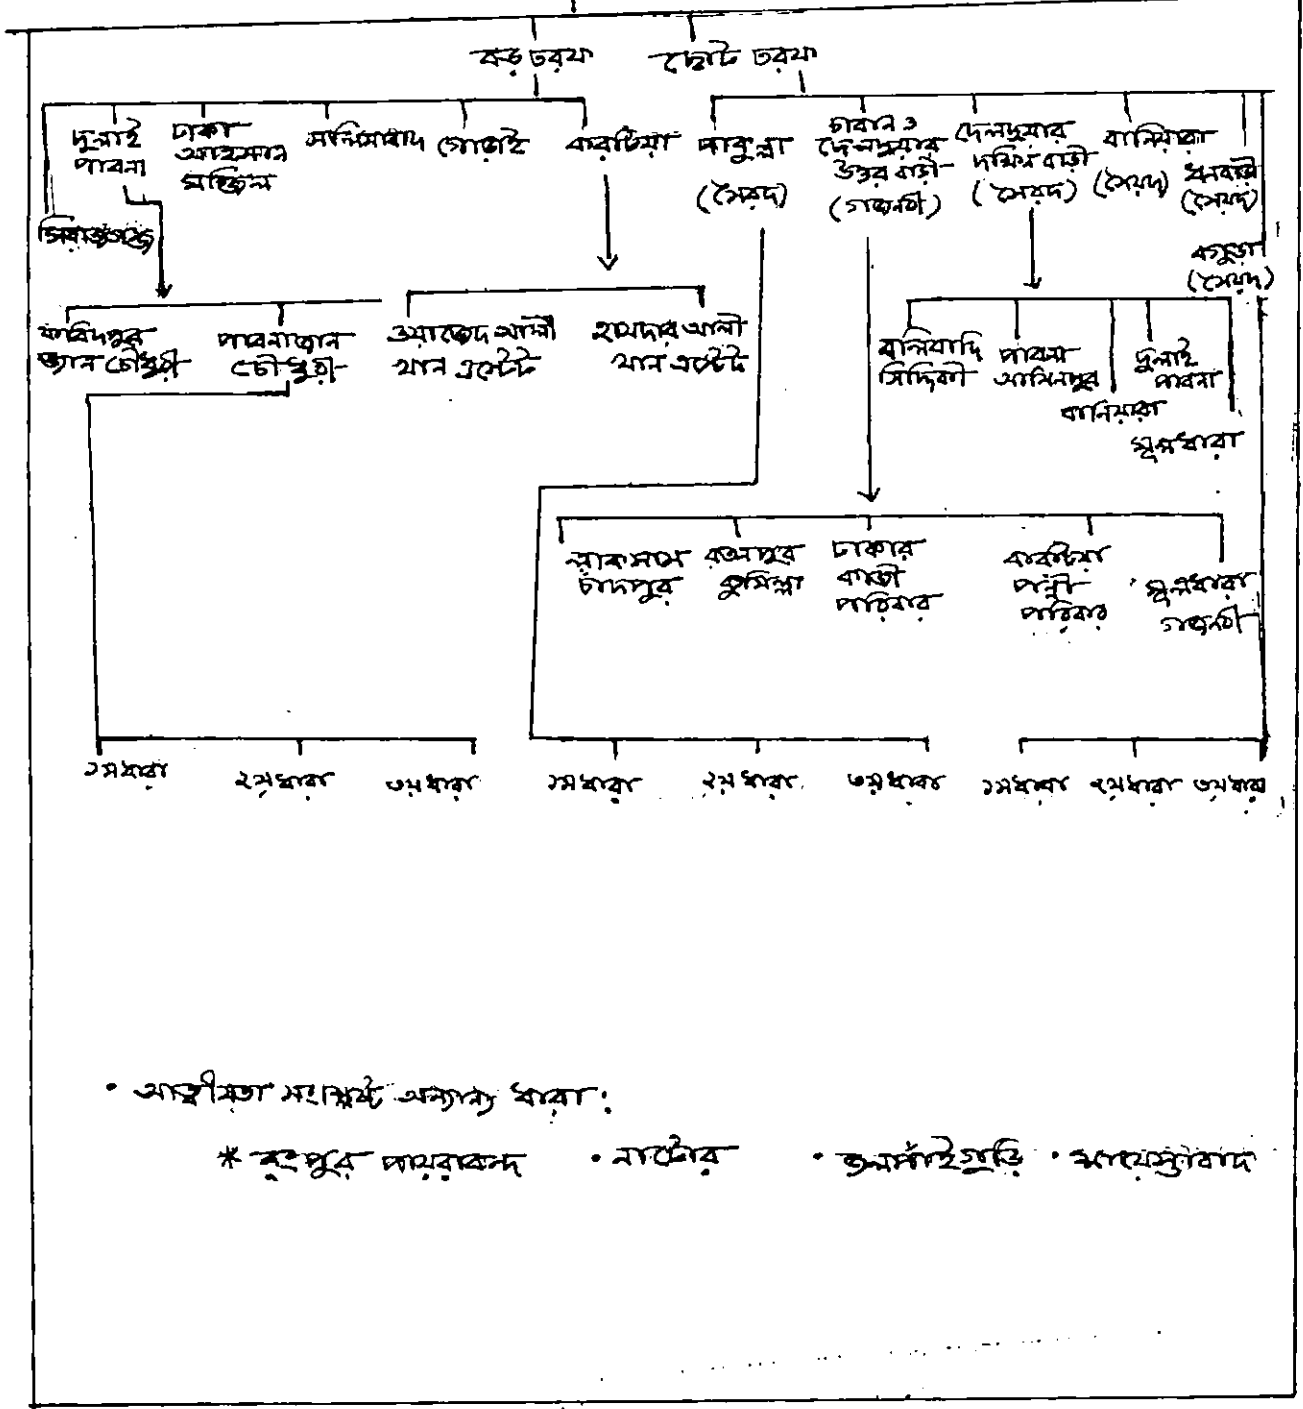 বড় তরফ
ছোট তরফ
দুলাই
পাবনা
ঢাকা
আহসান
মঞ্জিল
সলিমাবাদ
গোড়াই
করটিয়া
পাকুল্লা
(সৈয়দ)
চারান ও
দেলদুয়ার
উত্তর বাড়ী
(গজনবী)
দেলদুয়ার
দক্ষিণ বাড়ী
(সৈয়দ)
বানিয়ারা
(সৈয়দ)
ধনবাড়ী
(সৈয়দ)
সিরাজগঞ্জ
বগুড়া
(সৈয়দ)
ফরিদপুর
খান চৌধুরী
পাবনা খান
চৌধুরী
ওয়াজেদ আলী
খান এস্টেট
হায়দার আলী
খান এস্টেট
বালিয়াদি
সিদ্দিকী
পাবনা
আমিনপুর
বানিয়ারা
দুলাই
পাবনা
মূলধারা
লাকসাম
চাঁদপুর
রতনপুর
কুমিল্লা
ঢাকার
কাজী
পরিবার
করটিয়া
পন্নী
পরিবার
মূলধারা
গজনবী
১মধারা
২য়ধারা
৩য়ধারা
১মধারা
২য়ধারা
৩য়ধারা
১মধারা
২য়ধারা
৩য়ধারা
• আত্মীয়তা সংশ্লিষ্ট অন্যান্য ধারা:
* রংপুর পায়রাবন্দ • নাটোর • জলপাইগুড়ি • শায়েস্তাবাদ